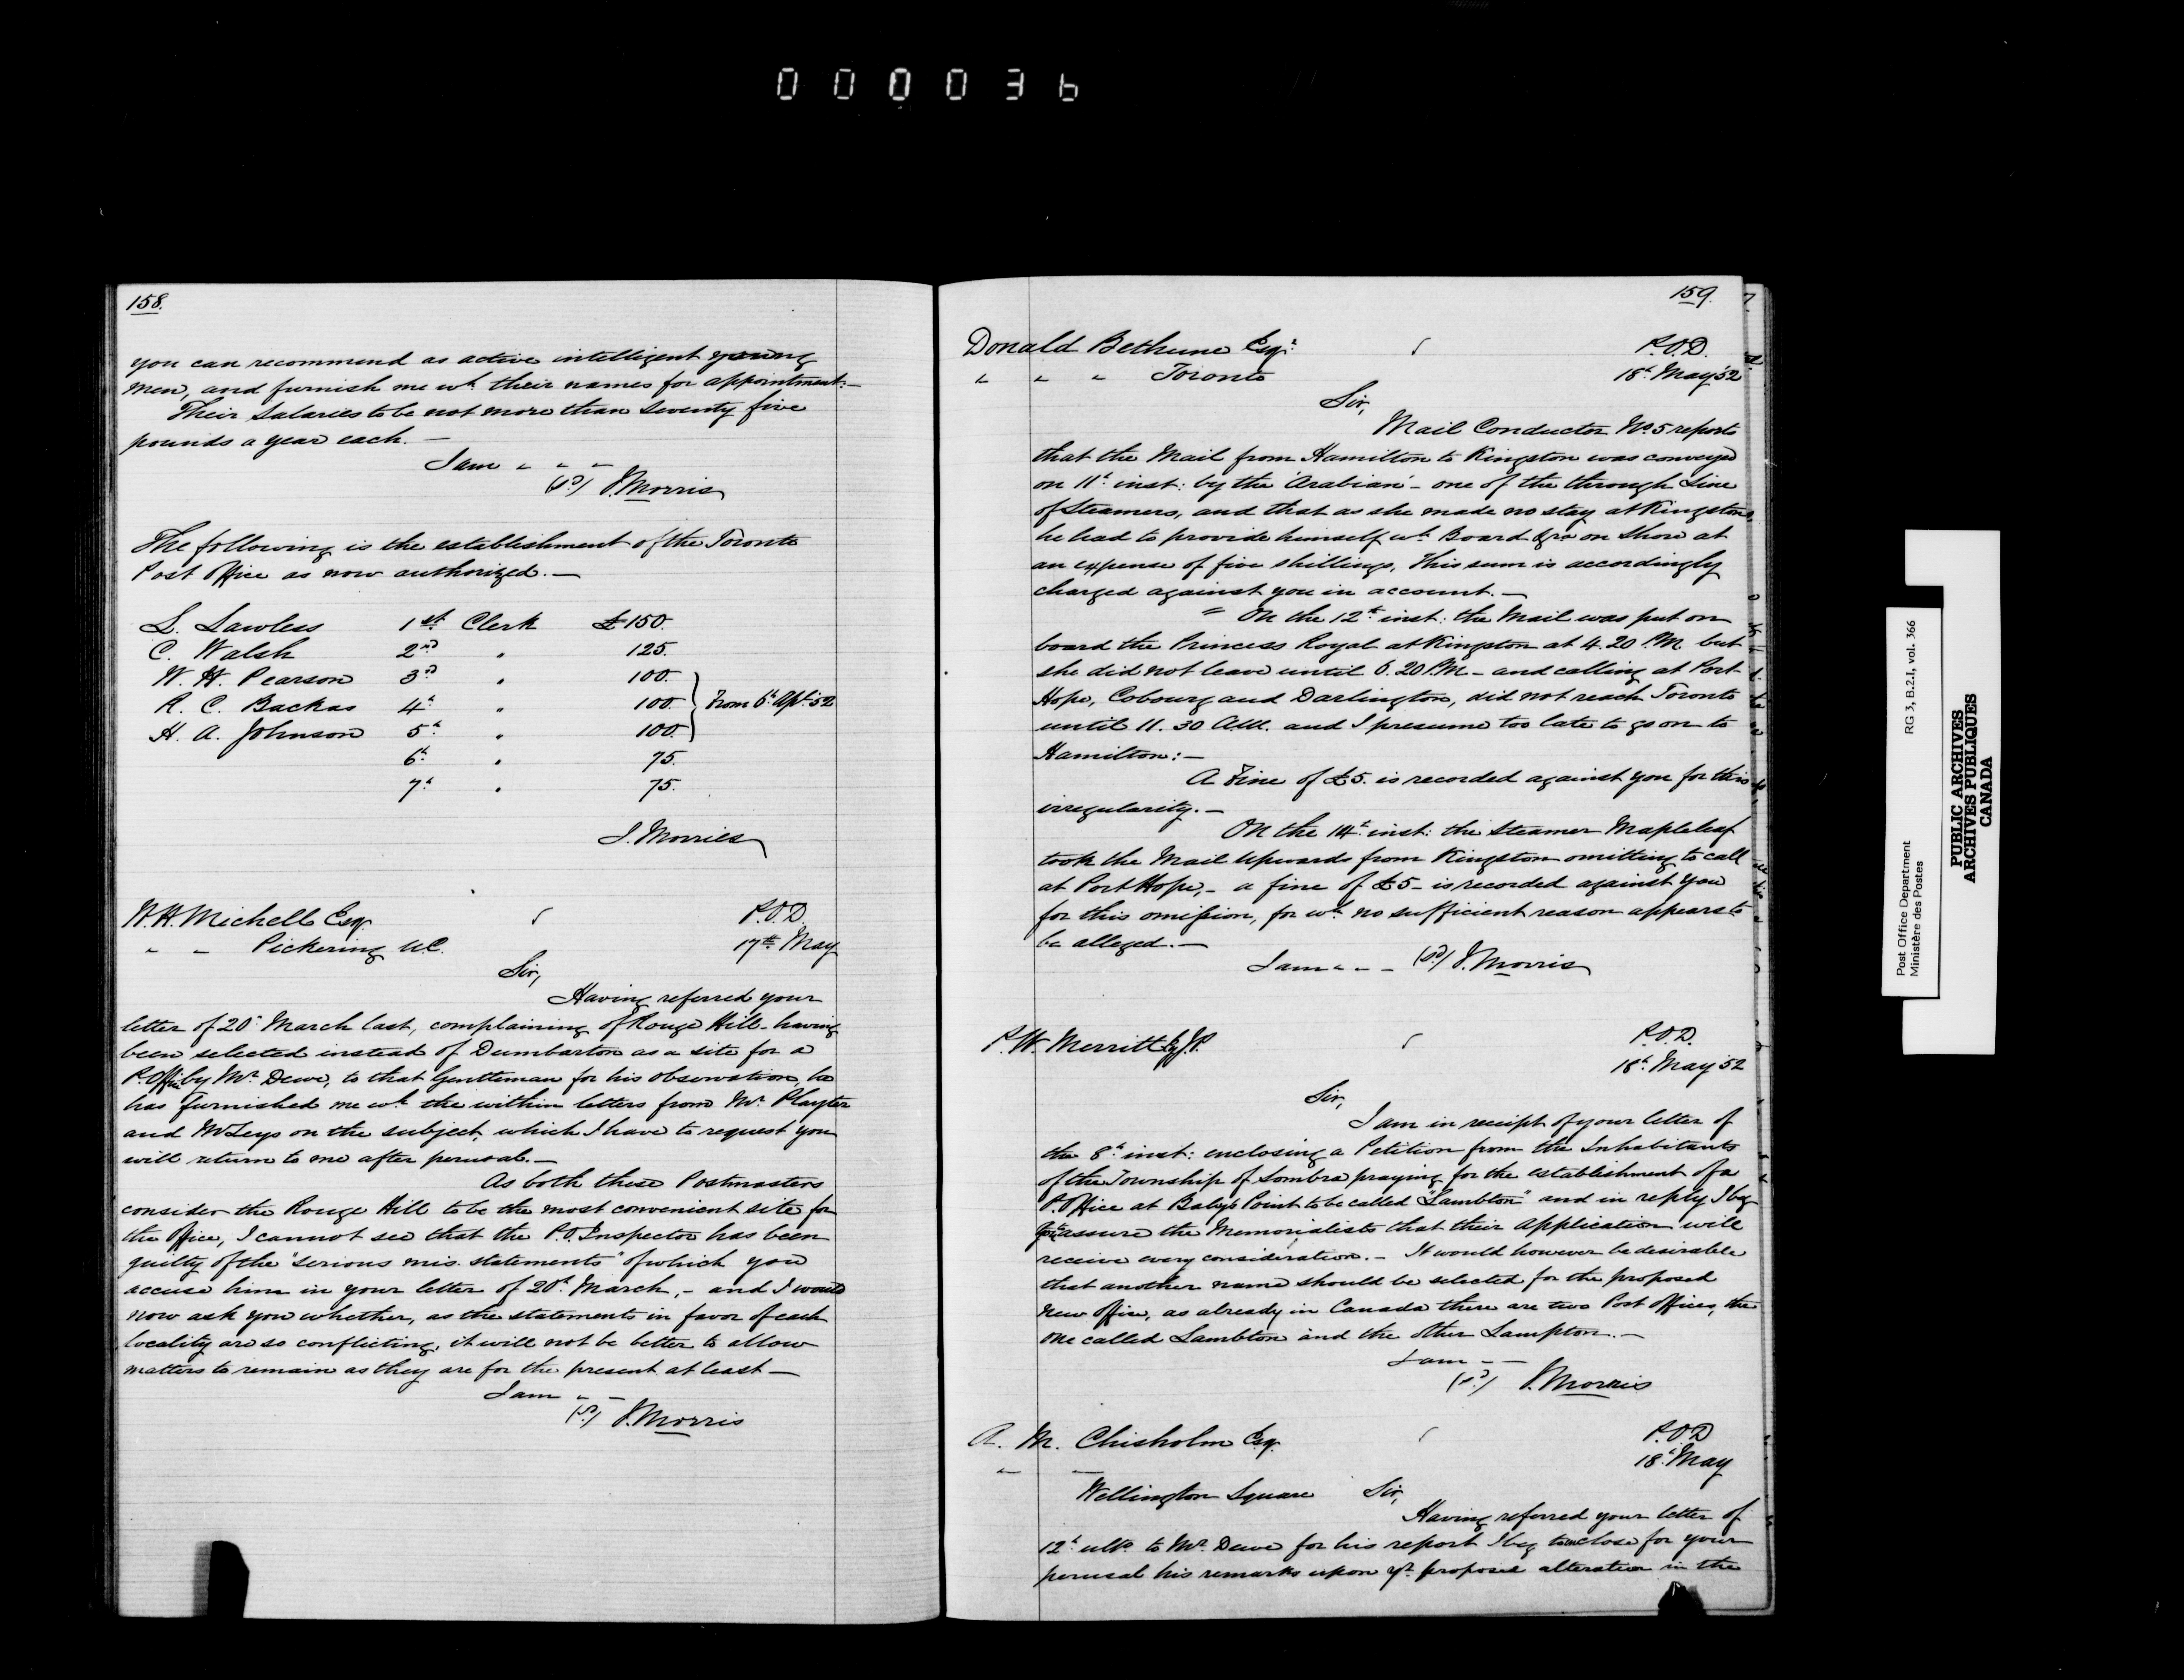 000036
158.
you can recommend as active intelligent young
men, and furnish me wh. their names for appointment:—
Their Salaries to be not more than Seventy five
pounds a year each. —
I am " " "
(sd) J. Morris
The following is the establishment of the Toronto
Post Office as now authorized. —
S. Lawless 1st Clerk £150.
C. Walsh 2nd " 125.
W. H. Pearson 3d " 100.
R. C. Backas 4th " 100. } From 6th Apl. 52
H. A. Johnson 5th " 100.
6th " 75.
7th " 75.
J. Morris
W. H. Michell Esq. P.O.D.
" " Pickering U.C. 17th May
Sir,
Having referred your
letter of 20th March last, complaining of Rouge Hill having
been selected instead of Dumbarton as a site for a
P. Office by Mr. Dewe, to that Gentleman for his observation, he
has furnished me wh. the within letters from Mr. Playter
and Mr Leys on the subject, which I have to request you
will return to me after perusal. —
As both these Postmasters
consider the Rouge Hill to be the most convenient site for
the Office, I cannot see that the P.O. Inspector has been
guilty of the "serious mis. statements" of which you
accuse him in your letter of 20th March, - and I would
now ask you whether, as the statements in favor of each
locality are so conflicting, it will not be better to allow
matters to remain as they are for the present at least —
I am " "
(sd) J. Morris
159.
Donald Bethune Esqr. P.O.D.
" " " Toronto 18th May '52
Sir,
Mail Conductor No. 5 reports
that the Mail from Hamilton to Kingston was conveyed
on 11th inst: by the 'Arabian' - one of the through Line
of Steamers, and that as she made no stay at Kingston,
he had to provide himself wh. Board &ca on Shore at
an expense of five shillings. This sum is accordingly
charged against you in account. —
" On the 12th inst: the Mail was put on
board the Princess Royal at Kingston at 4.20 P.M. but
she did not leave until 6.20 P.M. - and calling at Port
Hope, Cobourg and Darlington, did not reach Toronto
until 11.30 A.M. and I presume too late to go on to
Hamilton: —
A Fine of £5. is recorded against you for this
irregularity. —
On the 14th inst: the Steamer Mapleleaf
took the Mail upwards from Kingston omitting to call
at Port Hope, - a fine of £5 - is recorded against you
for this omission, for wh. no sufficient reason appears to
be alleged. —
I am " " " (sd) J. Morris
P. W. Merritt Esq J.P. P.O.D.
18th May '52
Sir,
I am in receipt of your letter of
the 8th inst: enclosing a Petition from the Inhabitants
of the Township of Sombra praying for the establishment of a
P. Office at Baby's Point to be called "Lambton" and in reply I beg
you assure the Memorialists that their application will
receive every consideration. - It would however be desirable
that another name should be selected for the proposed
new Office, as already in Canada there are two Post Offices, the
one called Lambton and the other Lampton. —
I am " "
(sd) J. Morris
A. M. Chisholm Esq. P.O.D
" " 18th May
Wellington Square Sir,
Having referred your letter of
12th ulto. to Mr. Dewe for his report I beg to enclose for your
perusal his remarks upon yr. proposed alteration in the
Post Office Department
Ministère des Postes
RG 3, B.2.I, vol. 366
PUBLIC ARCHIVES
ARCHIVES PUBLIQUES
CANADA